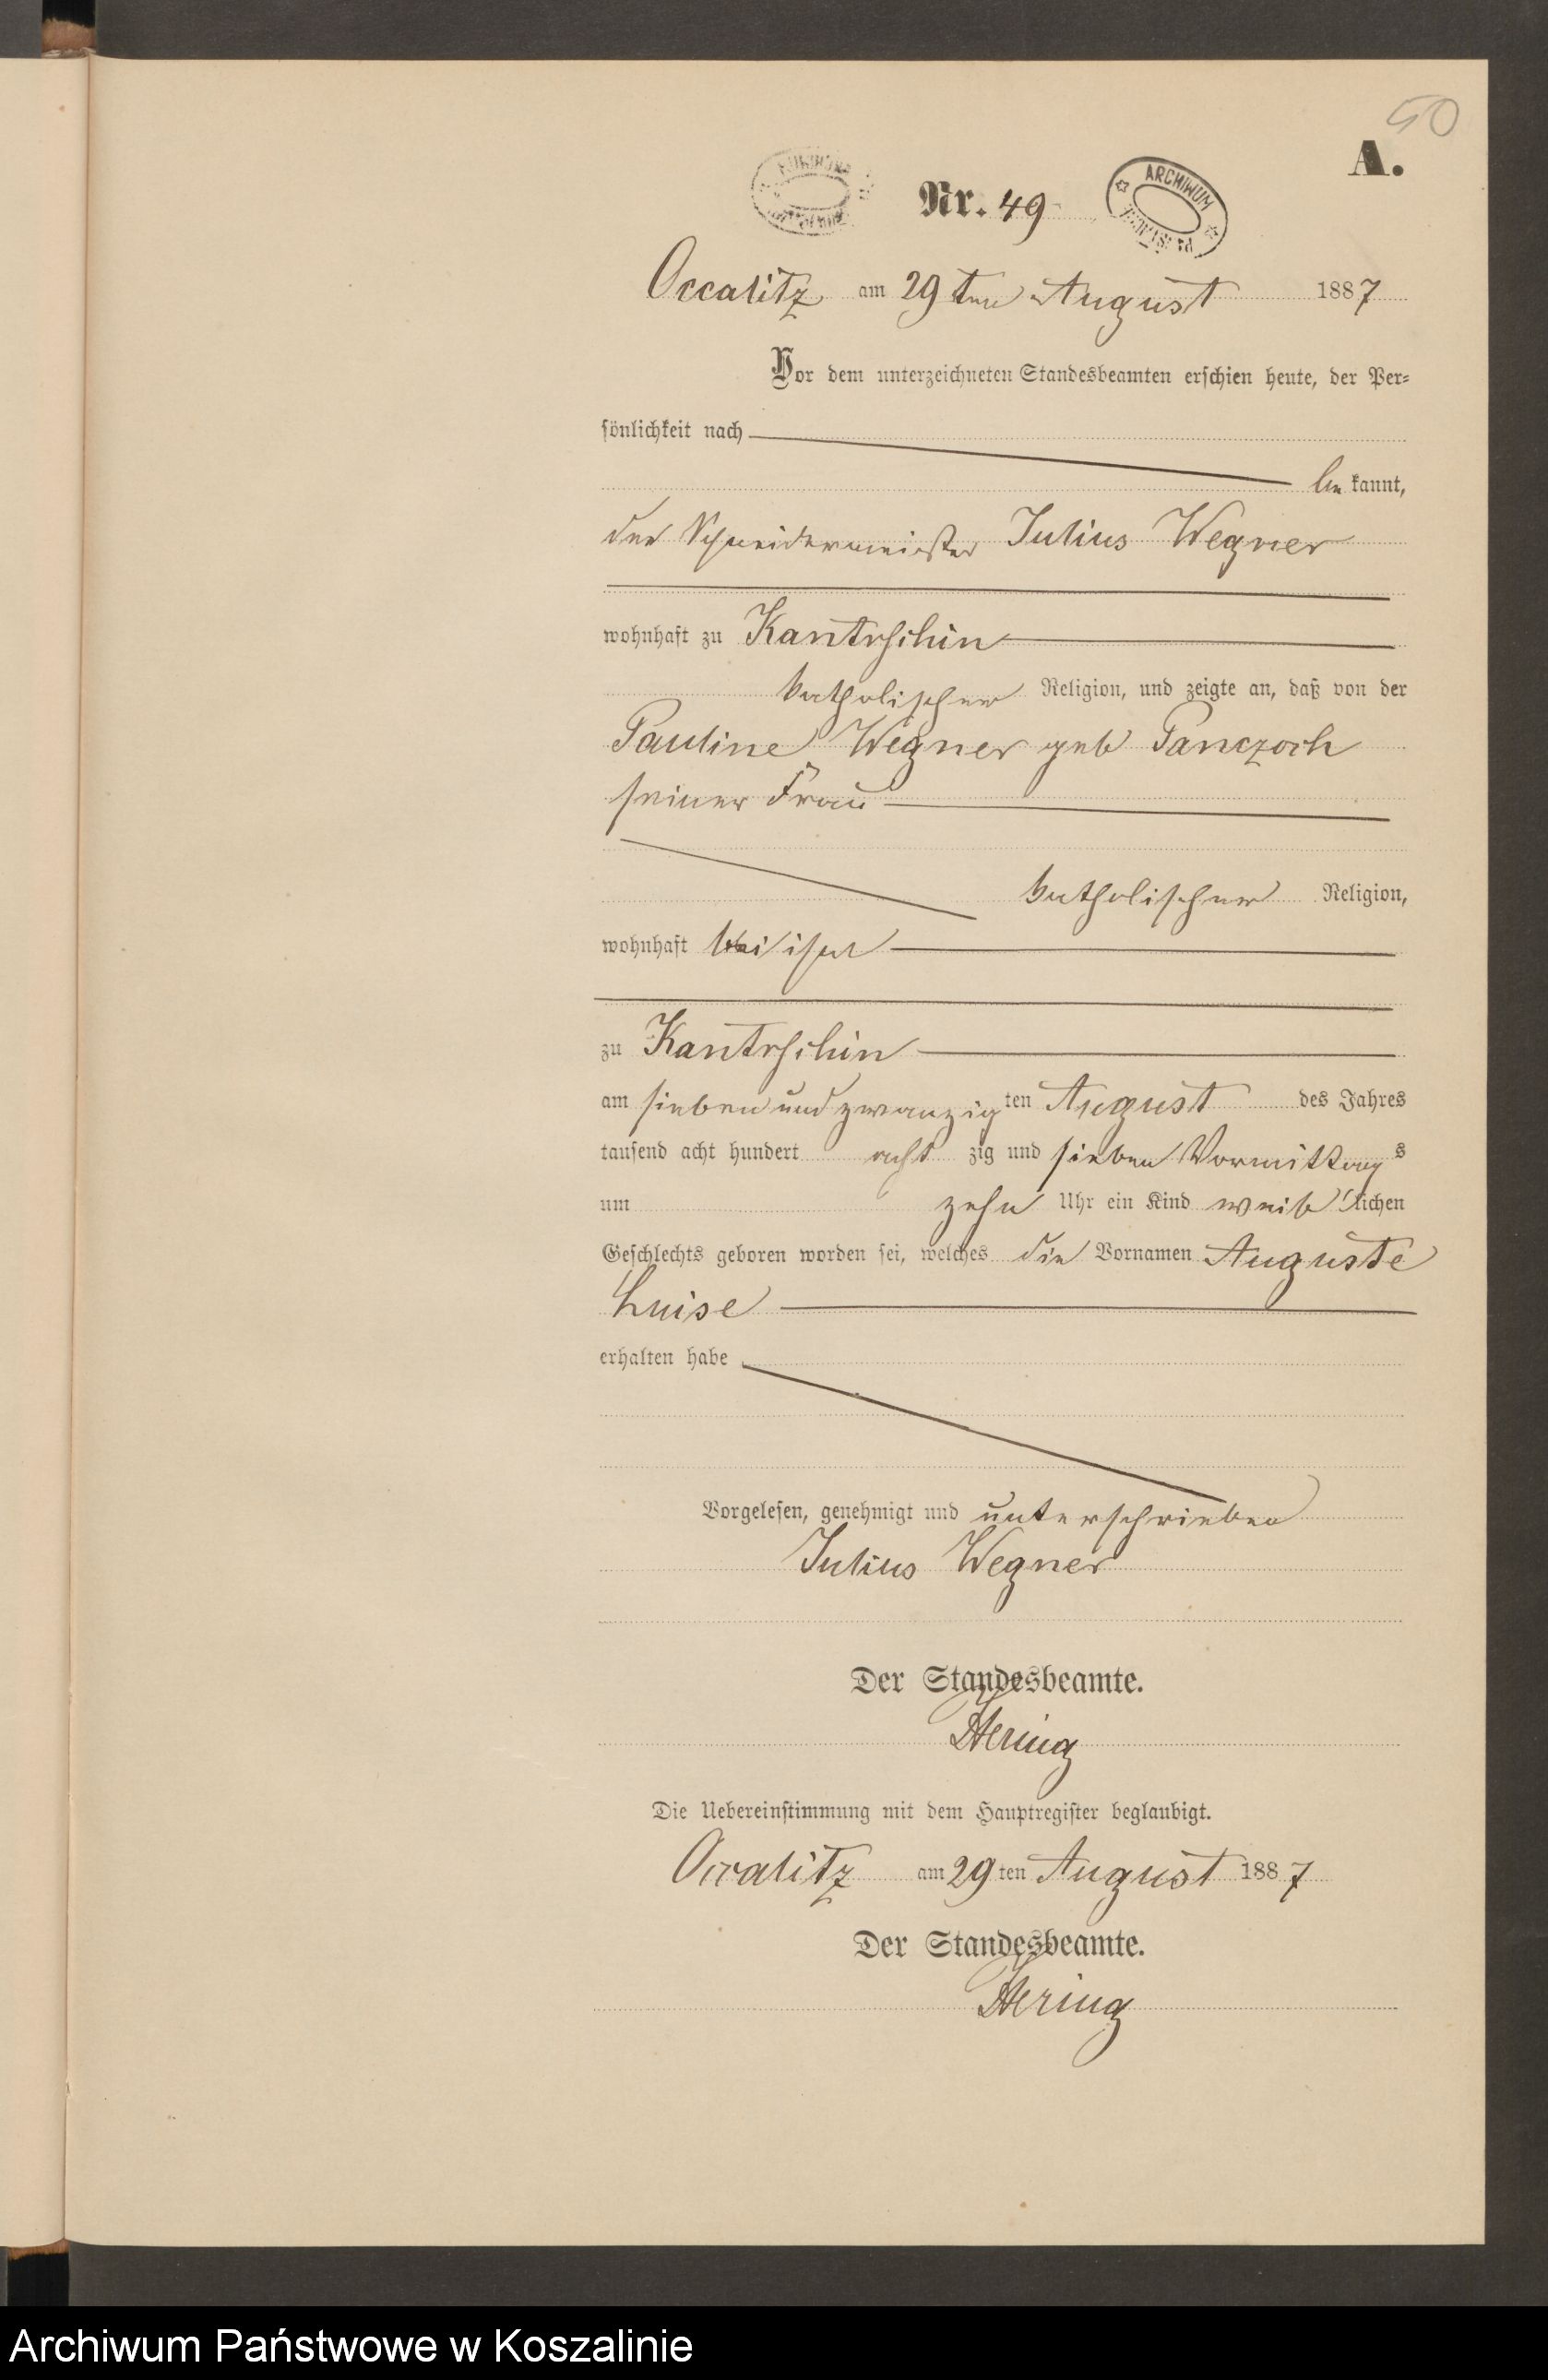 50
A.
Nr. 49
ARCHIWUM
Occalitz am 29 ten August 1887
Vor dem unterzeichneten Standesbeamten erschien heute, der Per=
sönlichkeit nach
be kannt,
der Schneidermeister Julius Wegner
wohnhaft zu Kantrschin
katholischer Religion, und zeigte an, daß von der
Pauline Wegner geb Panczoch
seiner Frau
katholischer Religion,
wohnhaft bei ihm
zu Kantrschin
am sieben und zwanzig ten August des Jahres
tausend acht hundert acht zig und sieben Vormittag s
um zehn Uhr ein Kind weib lichen
Geschlechts geboren worden sei, welches die Vornamen Auguste
Luise
erhalten habe
Vorgelesen, genehmigt und unterschrieben
Julius Wegner
Der Standesbeamte.
Hering
Die Uebereinstimmung mit dem Hauptregister beglaubigt.
Occalitz am 29 ten August 1887
Der Standesbeamte.
Hering
Archiwum Państwowe w Koszalinie